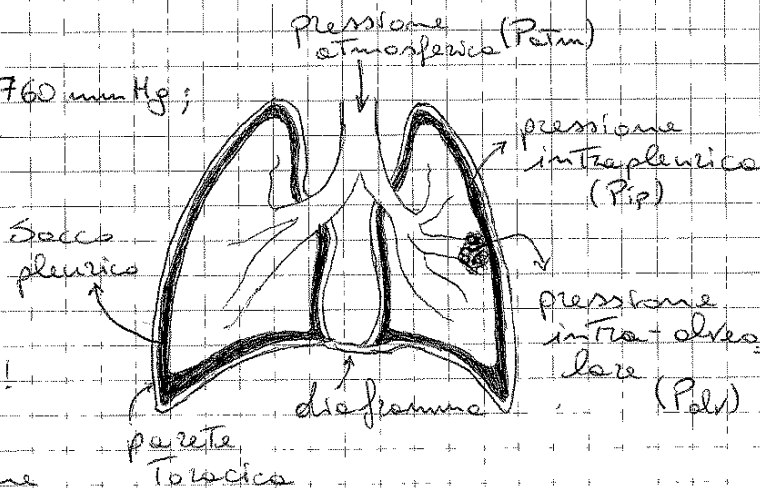 pressione
atmosferica (Patm)
760 mmHg;
pressione
intrapleurica
(Pip)
Sacco
pleurico
pressione
intra-alveo
lare
(Palv)
!
diaframma
parete
Toracica
ne